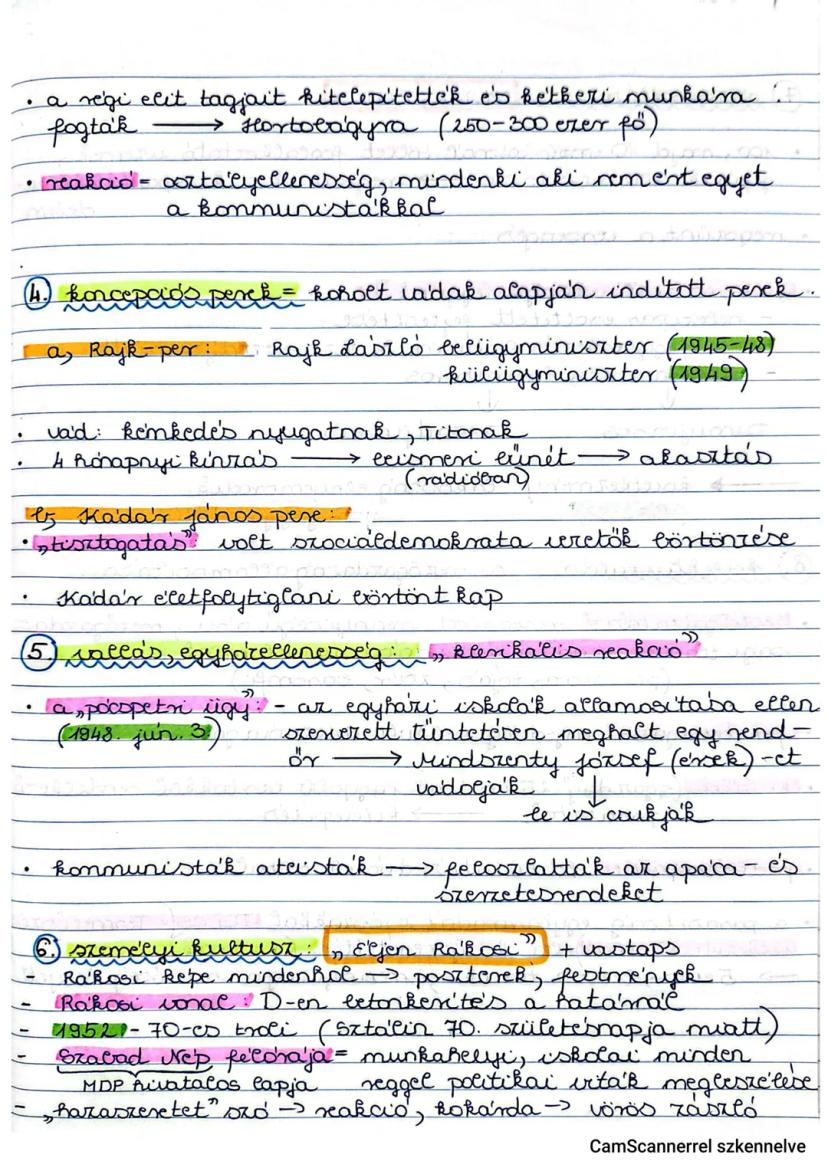 • a régi elit tagjait kitelepítették és kétkezi munkára
fogták → Hortobágyra (250-300 ezer fő)
• reakció = osztályellenesség, mindenki aki nem ért egyet
a kommunistákkal
4. koncepciós perek = koholt vádak alapján indított perek.
a, Rajk-per: Rajk László belügyminiszter (1945-48)
külügyminiszter (1949)
• vád: kémkedés nyugatnak, Titonak
• 4 hónapnyi kínzás → beismeri bűnét → akasztás
(rádióban)
b, Kádár János pere:
• „tisztogatás” volt szociáldemokrata vezetők börtönzése
• Kádár életfolytiglani börtönt kap
5. vallás, egyházellenesség: „klerikális reakció”
• a „pócspetri ügy”: - az egyházi iskolák államosítása ellen
(1948. jún. 3) szervezett tüntetésen meghalt egy rend-
őr → Mindszenty József (érsek) -et
vádolják ↓
le is csukják
• kommunisták ateisták → feloszlatták az apáca- és
szerzetesrendeket
6. személyi kultusz: „éljen Rákosi” + vastaps
Rákosi képe mindenhol → poszterek, festmények
- Rákosi vonal: D-en betonkerítés a határnál
- 1952 - 70-es troli (Sztálin 70. születésnapja miatt)
- Szabad Nép félórája = munkahelyi, iskolai minden
MDP hivatalos lapja reggel politikai viták megbeszélése
- „hazaszeretet” szó → reakció, kokárda → vörös zászló
CamScannerrel szkennelve